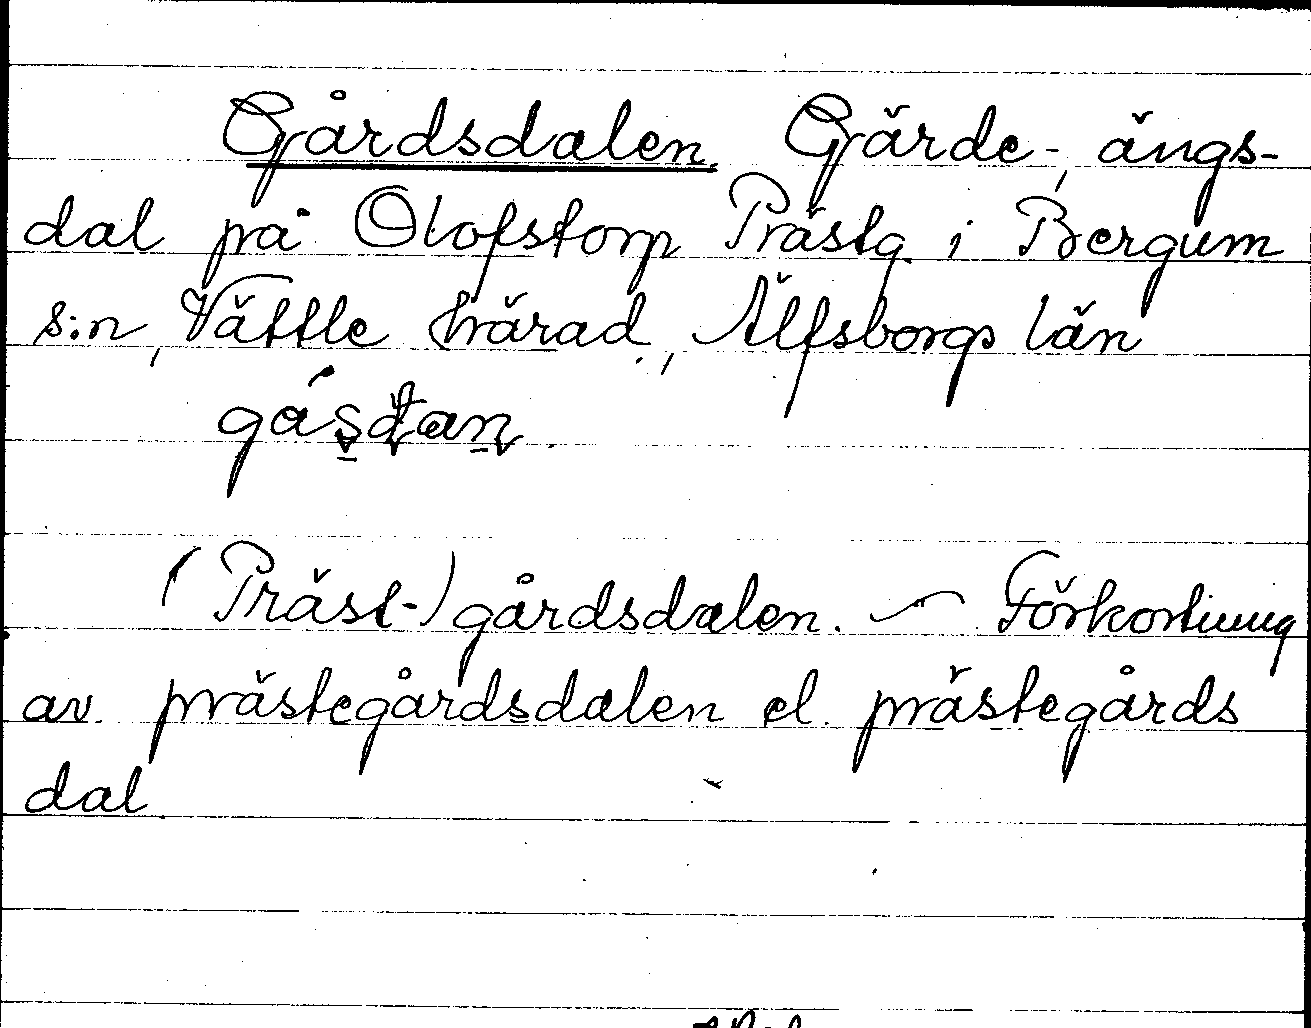 Gårdsdalen. Gärde-, ängs-
dal på Olofstorp Prästg. i Bergum
s:n, Vättle härad, Älfsborgs län
(Präst-)gårdsdalen. — Förkortning
av prästegårdsdalen el. prästegårds
dal.